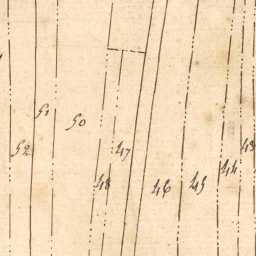 51
50
52
47
48
46
45
44
43